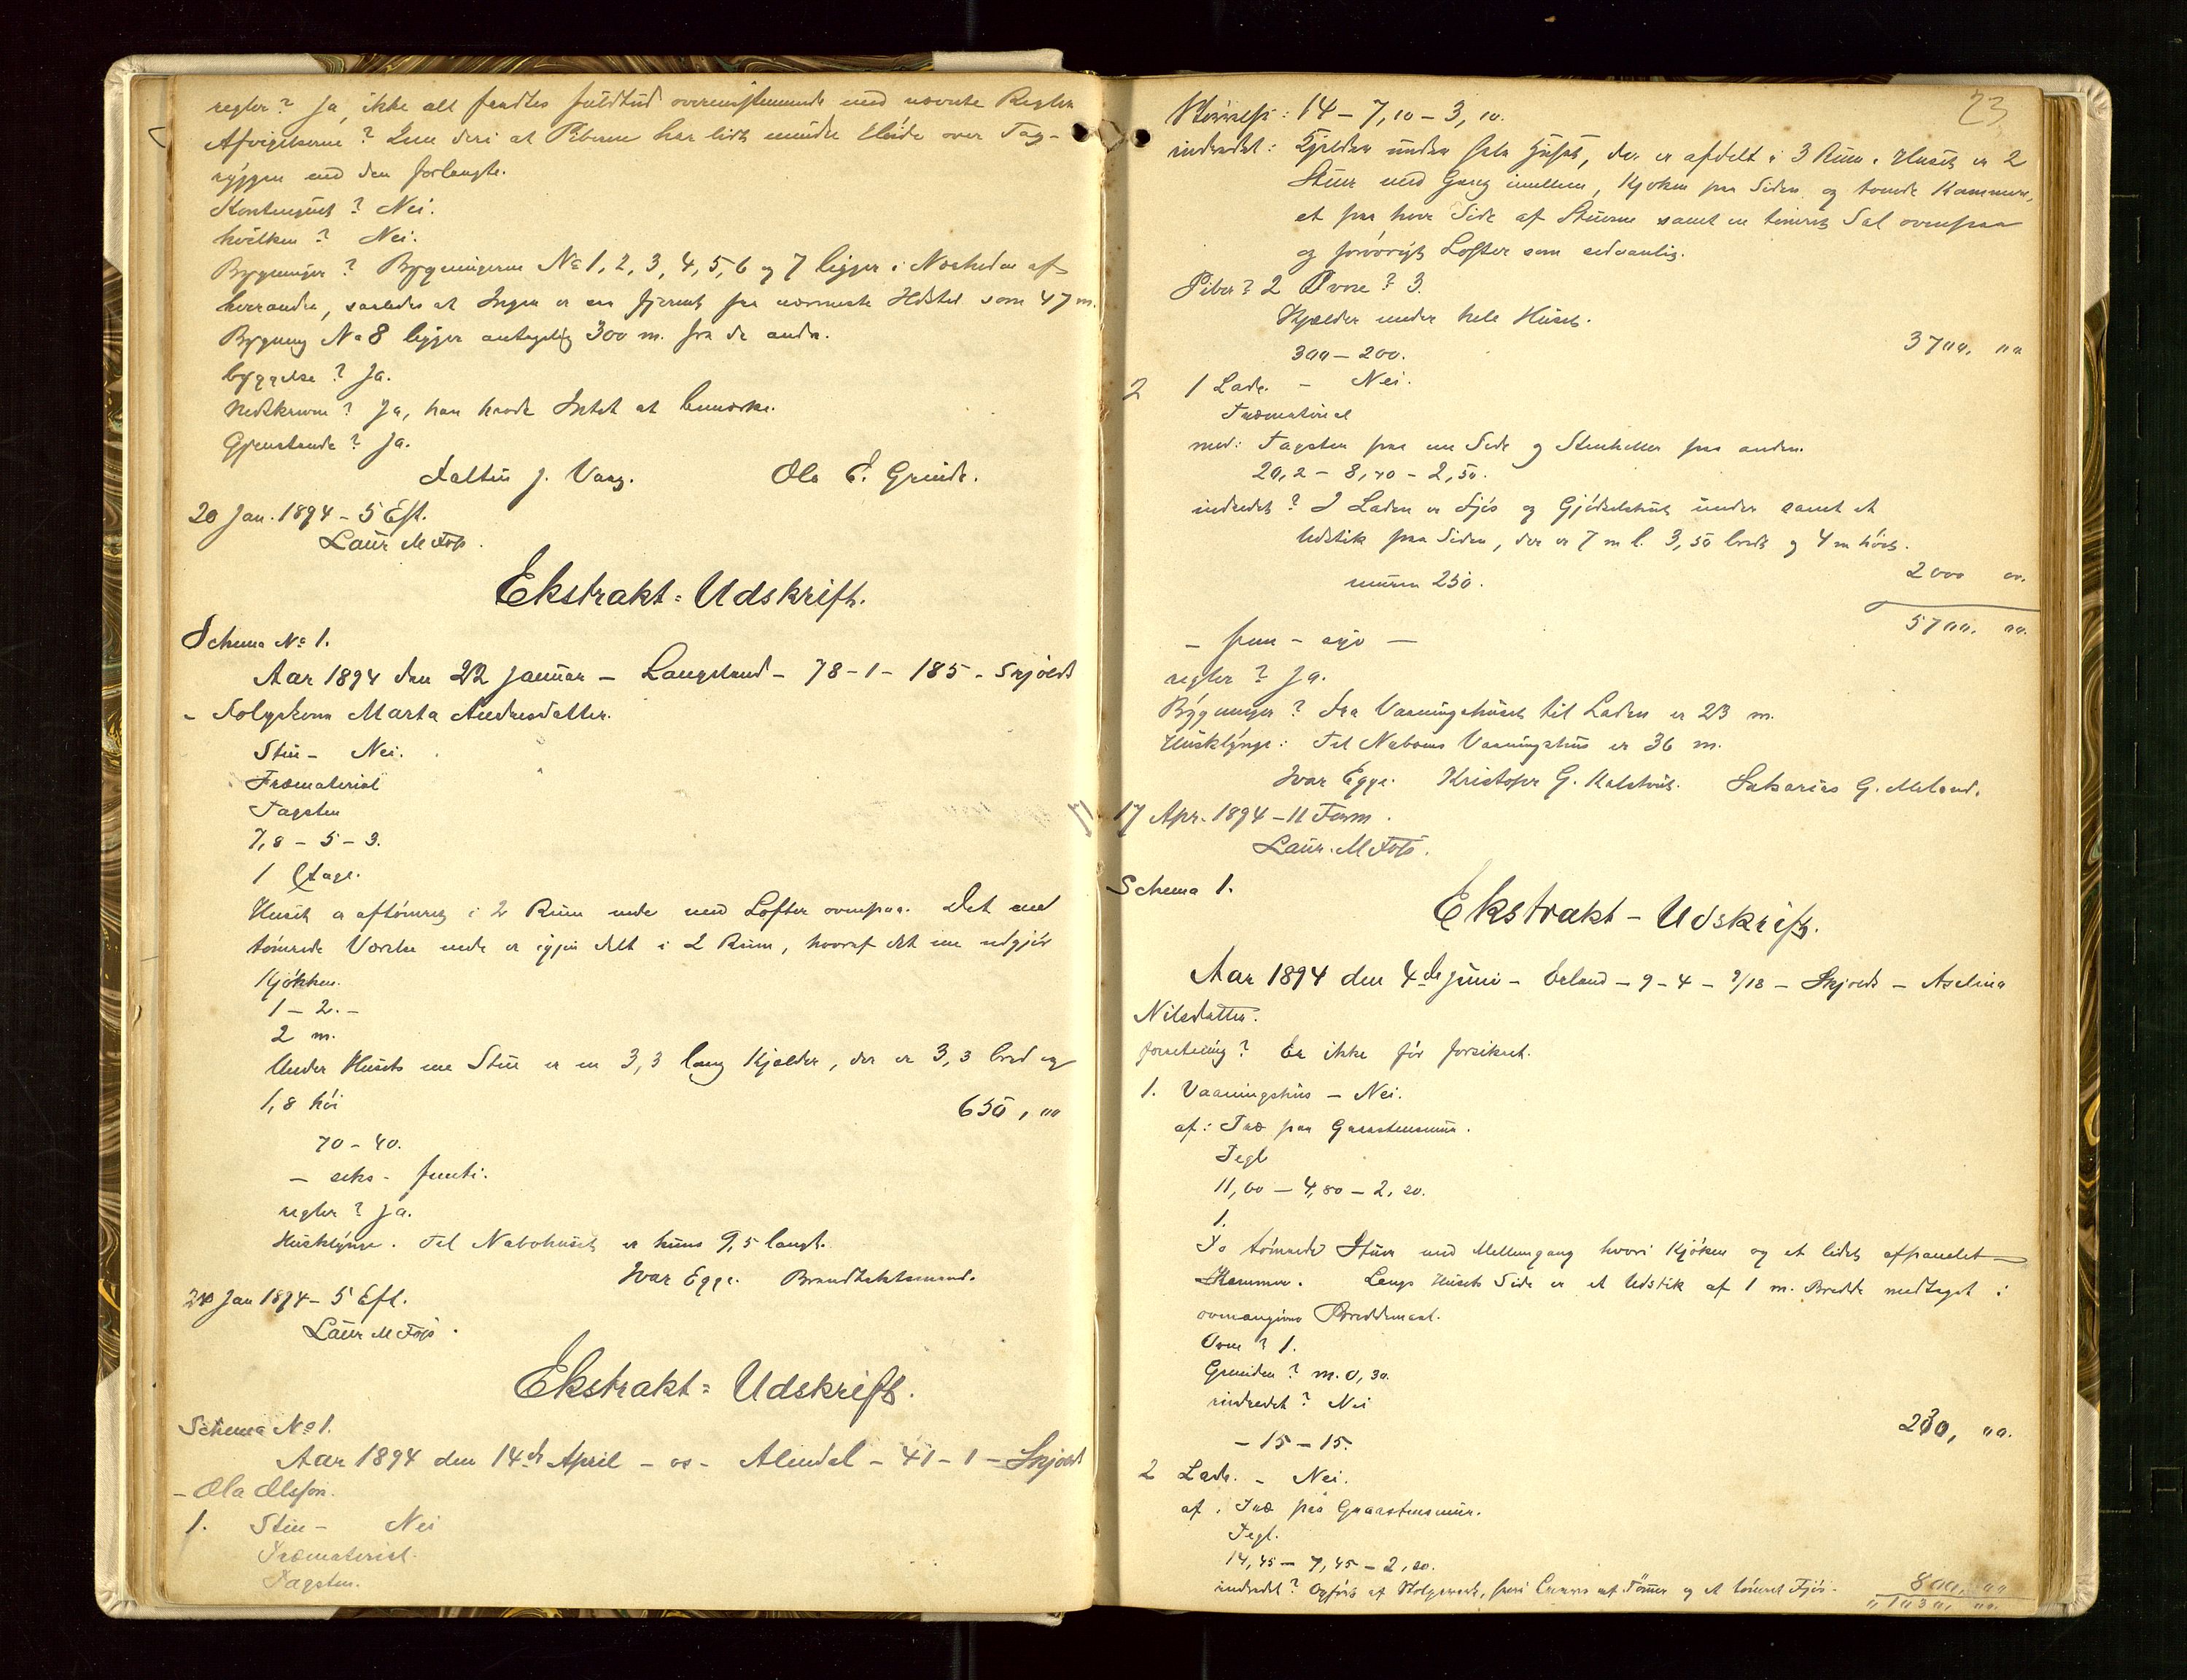 regler? Ja, ikke alt fandtes fuldtud overenstemmende med nævnte Regler
Afvigelserne? Kun deri at Piberne har lidt mindre Høide over Tag-
ryggen end den forlangte.
Kontingent? Nei.
hvilken? Nei.
Bygninger? Bygningerne No 1, 2, 3, 4, 5, 6 og 7 ligger i Nærheden af
hverandre, saaledes at Ingen er saa fjernt fra nærmeste Hosstel som 47 m.
Bygning No 8 ligger antagelig 300 m. fra de andre.
byggelse? Ja.
Nedskrevne? Ja, han havde Intet at bemærke.
Gjenstande? Ja.
J. Vaag. Ola E. Grinde.
20 Jan. 1894 - 5 Eft.
Laur M Foss.
Ekstrakt-Udskrift.
Schema No 1.
Aar 1894 den 22 Januar - Langeland - 78-1-185 - Skjold
- Marta Andreasdatter.
Stue - Nei.
Træmaterial
Tagsten
7,8 - 5 - 3.
1 Etage.
Huset er aftømret i 2 Rum nede med Lofter ovenpaa. Det ene
tømrede Værelse nede er igjen delt i 2 Rum, hvoraf det ene udgjør
Kjøkken.
1 - 2. -
2 m.
Under Husets ene Stue er en 3,3 lang Kjelder, der er 3,3 bred og
1,8 høi 650,00
70 - 40.
- seks - femti.
regler? Ja.
Husklynge. Til Nabohuset er kuns 9,5 langt.
Ivar Egge. Brandtakstmand.
24 Jan 1894 - 5 Eft.
Laur M Foss.
Ekstrakt-Udskrift.
Schema No 1.
Aar 1894 den 14de April - os - Alendal - 41 - 1 - Skjold
- Ola Olsson.
1. Stue - Nei
Træmaterial.
Tagsten.
23
Størrelse: 14 - 7,10 - 3,10.
indredet: Kjelder under hele Huset, der er afdelt i 3 Rum. Huset er 2
Stuer med Gang imellem, Kjøken paa Siden og tvende Kammere,
et paa hver Side af Stuerne samt en tømret Sal ovenpaa
og forøvrigt Lofter som sedvanlig.
Piber? 2 Ovne? 3.
Kjelder under hele Huset.
300 - 200. 3700,00
2 1 Lade. - Nei.
Træmaterial
med: Tagsten paa ene Side og Stenheller paa anden.
20,2 - 8,40 - 2,50.
indredet? I Laden er Fjøs og Gjødselshus under samt et
Udstik paa Siden, der er 7 m l. 3,50 bredt og 4 m høit.
muren 250. 2000 00.
5700,00.
- fem - syv -
regler? Ja.
Bygninger? Fra Vaaningshuset til Laden er 23 m.
Husklynge: Til Naboens Vaaningshus er 36 m.
Ivar Egge. Kristofer G. Kalstveit. Sakarias G. Meland.
17 Apr. 1894 - 11 Form.
Laur. M Foss.
Schema 1.
Ekstrakt-Udskrift.
Aar 1894 den 4de Juni - Erland - 9 - 4 - 9/18 - Skjold - Aselina
Nilsdatter.
forsikring? Er ikke før forsikret.
1. Vaaningshus - Nei.
af: Træ paa Graastensmur.
Tegl
11,60 - 4,80 - 2,20.
1.
To tømrede Stuer med Mellemgang hvori Kjøken og et lidet afpanelet
Kammer. Langs Husets Side er et Udstik af 1 m. Bredde medtaget i
ovenangivne Breddemaal.
Ovne? 1.
Grunden? m. 0,30.
indredet? Nei
- 15 - 15. 230,00.
2 Lade. - Nei.
af: Træ paa Graastensmur.
Tegl.
14,45 - 7,45 - 2,20.
indredet? Opført af Stolpeværk, hvori af Tømmer og et tømret Fjøs. 800,00
1030,00.